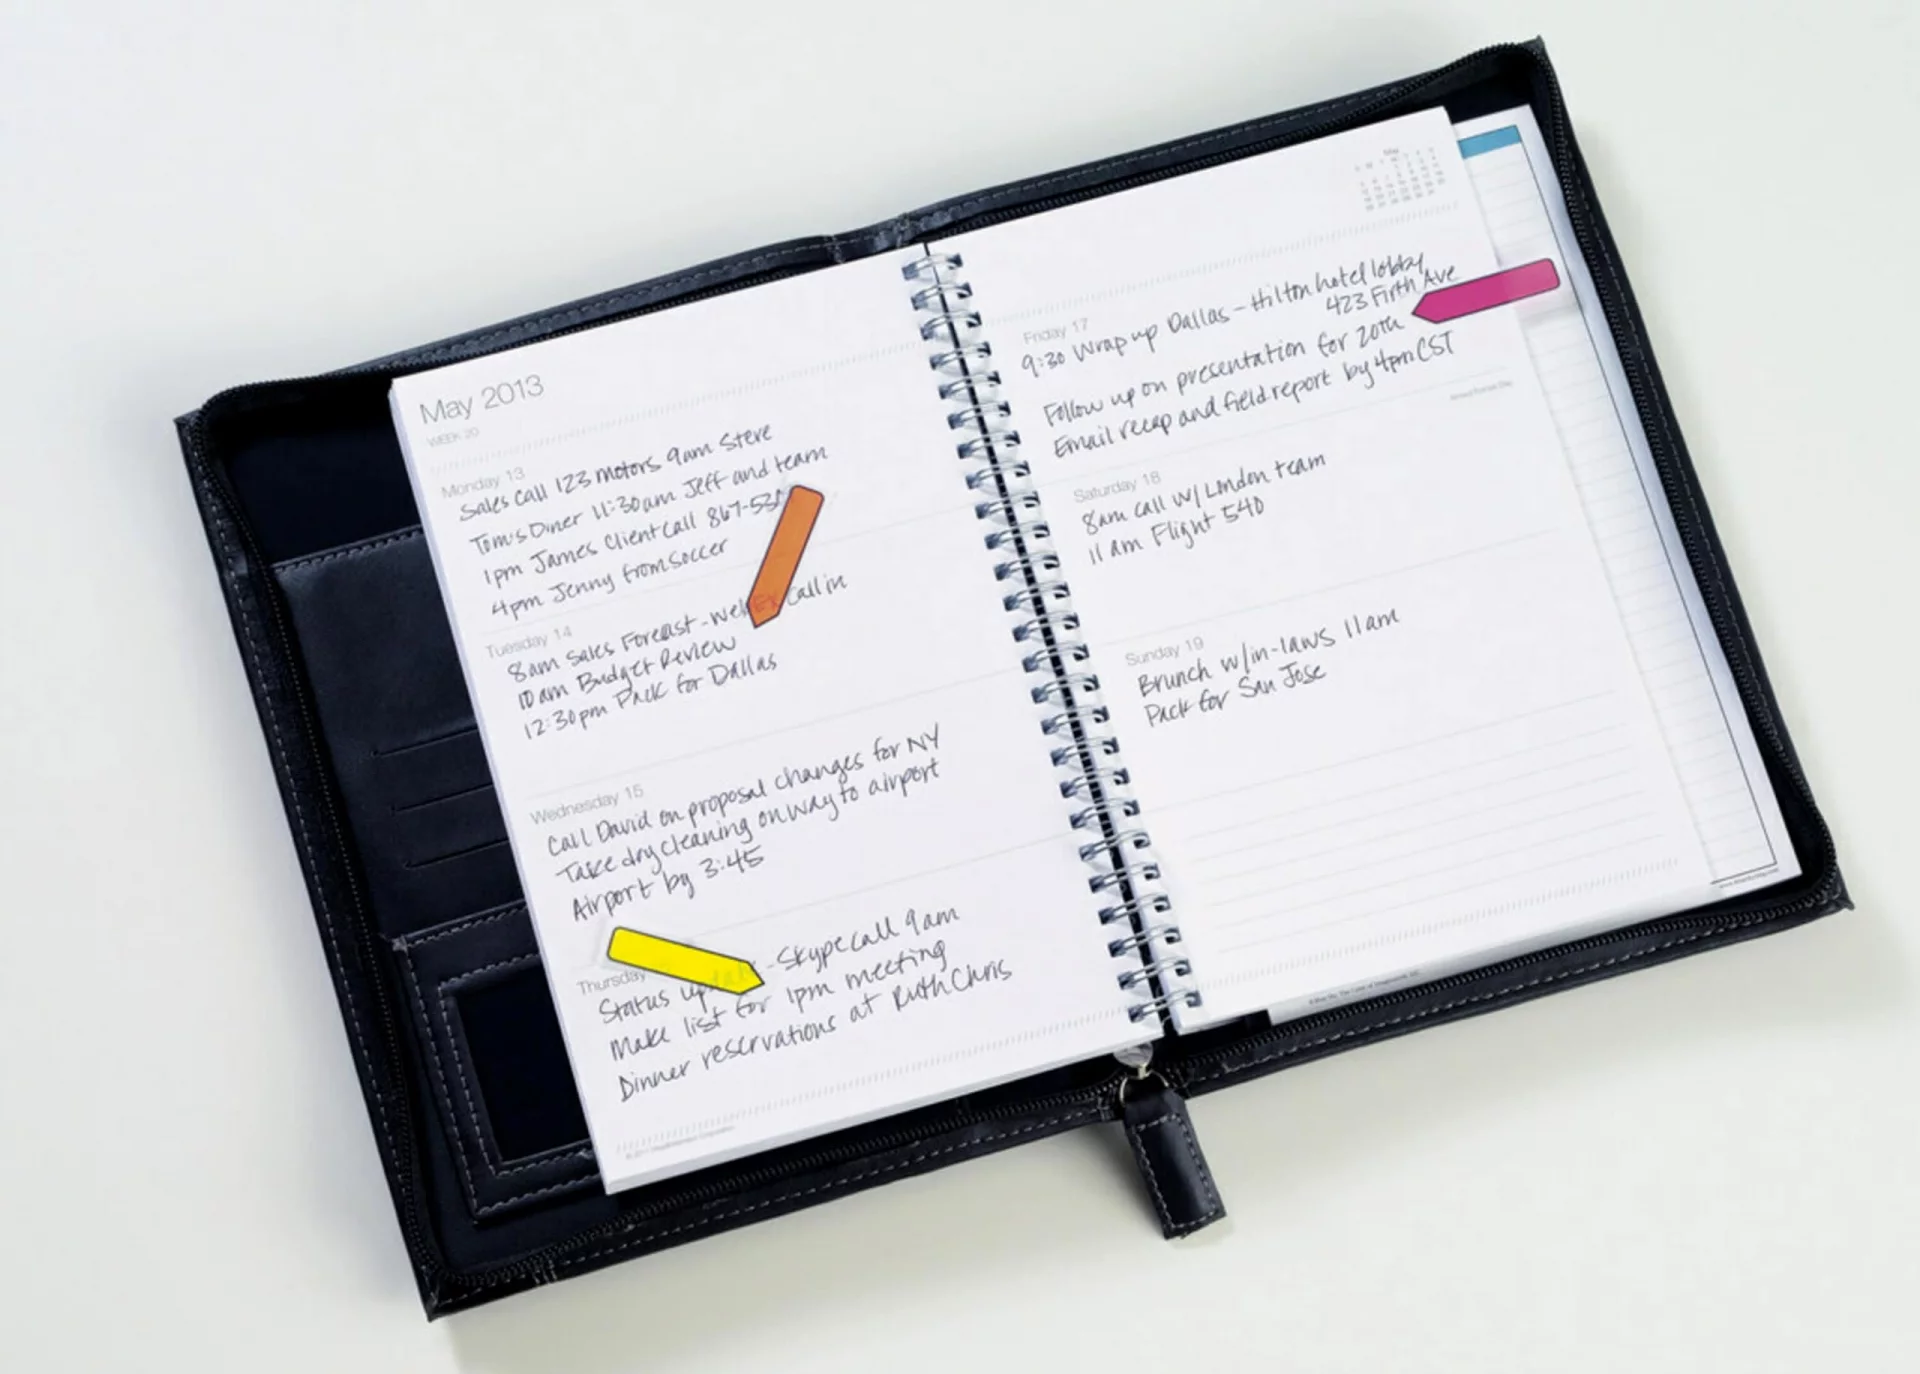 May 2013
WEEK 20
Monday 13
Sales Call 123 motors 9am Steve
Tom's Diner 11:30am Jeff and team
1pm James Client Call 867-53
4pm Jenny from soccer
Tuesday 14
8am Sales Forecast - WebEx Call in
10am Budget Review
12:30pm Pack for Dallas
Wednesday 15
Call David on proposal changes for NY
Take dry cleaning on way to airport
Airport by 3:45
Thursday
Status update - Skype call 9am
Make list for 1pm meeting
Dinner reservations at Ruth Chris
May
Friday 17
9:30 Wrap up Dallas - Hilton hotel lobby
423 Firth Ave
Follow up on presentation for 20th
Email recap and field report by 4pm CST
Armed Forces Day
Saturday 18
8am call w/ London team
11am Flight 540
Sunday 19
Brunch w/in-laws 11am
Pack for San Jose